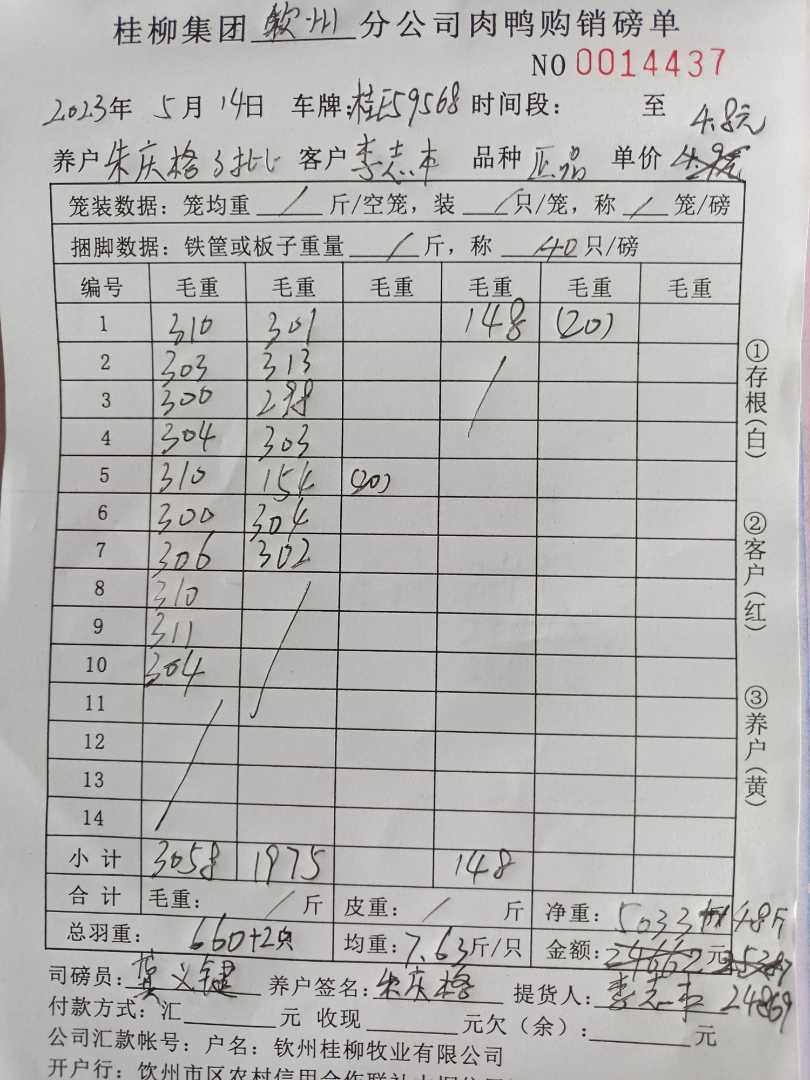 桂柳集团 钦州 分公司肉鸭购销磅单
NO 0014437
2023年 5月 14日 车牌:桂E59568 时间段: 至
4.8元
养户 朱庆格 3批 客户 李志 品种 正品 单价
笼装数据: 笼均重 / 斤/空笼, 装 / 只/笼, 称 / 笼/磅
捆脚数据: 铁筐或板子重量 / 斤, 称 40 只/磅
编号 毛重 毛重 毛重 毛重 毛重 毛重
1 310 301 148 (20)
2 303 313 /
3 300 298
4 304 303
5 310 154 (20)
6 300 304
7 306 302
8 310 /
9 311
10 304
11 /
12
13
14
小计 3058 1975 148
合计 毛重: / 斤 皮重: / 斤 净重: 5033 + 148斤
总羽重: 660+2只 均重: 7.63斤/只 金额: 24662元
司磅员: 莫义键 养户签名: 朱庆格 提货人: 李志 24869
付款方式: 汇 元 收现 元欠(余): 元
公司汇款帐号: 户名: 钦州桂柳牧业有限公司
开户行: 钦州市区农村信用合作联社
①存根(白)
②客户(红)
③养户(黄)